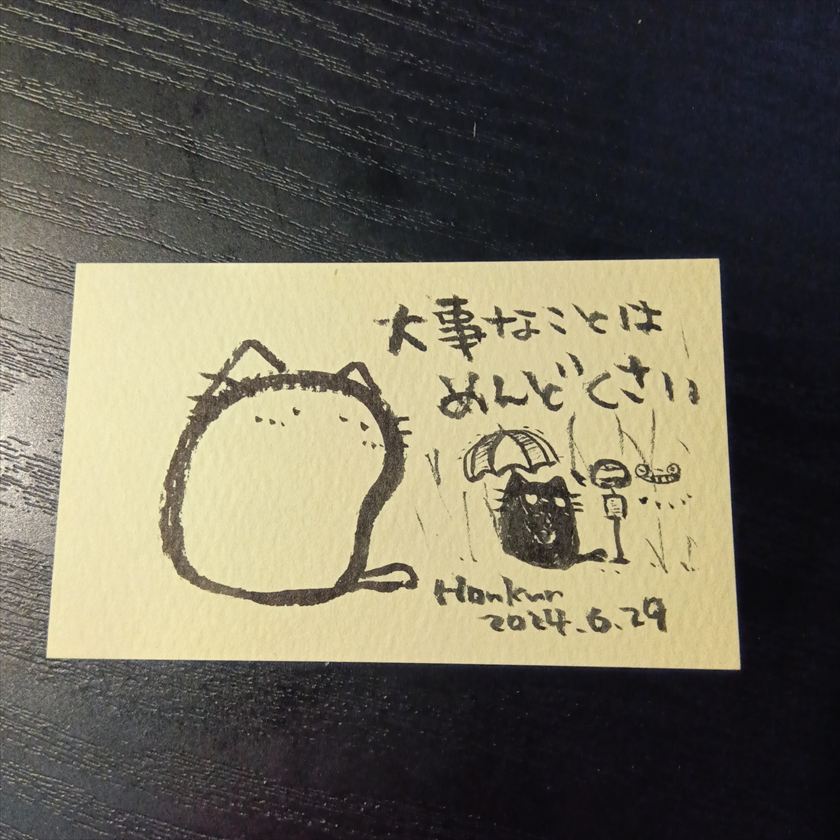 大事なことは
めんどくさい
Honkun
2024.6.29